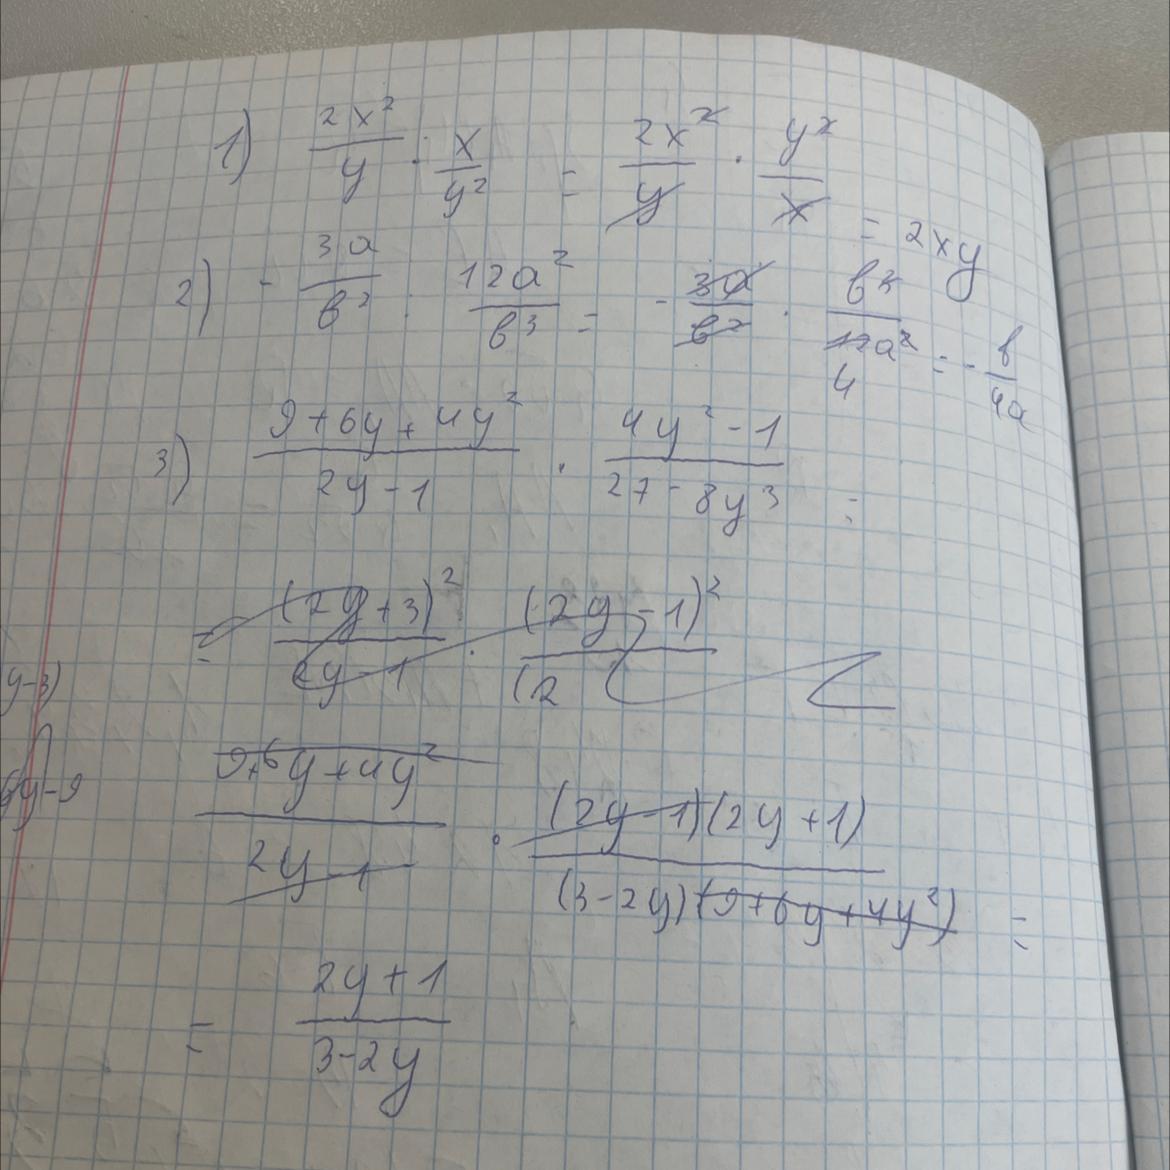 1) 2x²/y : x/y² = 2x²/y · y²/x = 2xy
2) - 3a/b² : 12a²/b³ = - 3a/b² · b³/12a² 4 = - b/4a
3) 9+6y+4y²/2y-1 · 4y²-1/27-8y³ =
= (2y+3)²/2y-1 · (2y-1)²/(2
y-3)
9+6y+4y²/2y-1 · (2y-1)(2y+1)/(3-2y)(9+6y+4y²) =
6y-9
= 2y+1/3-2y